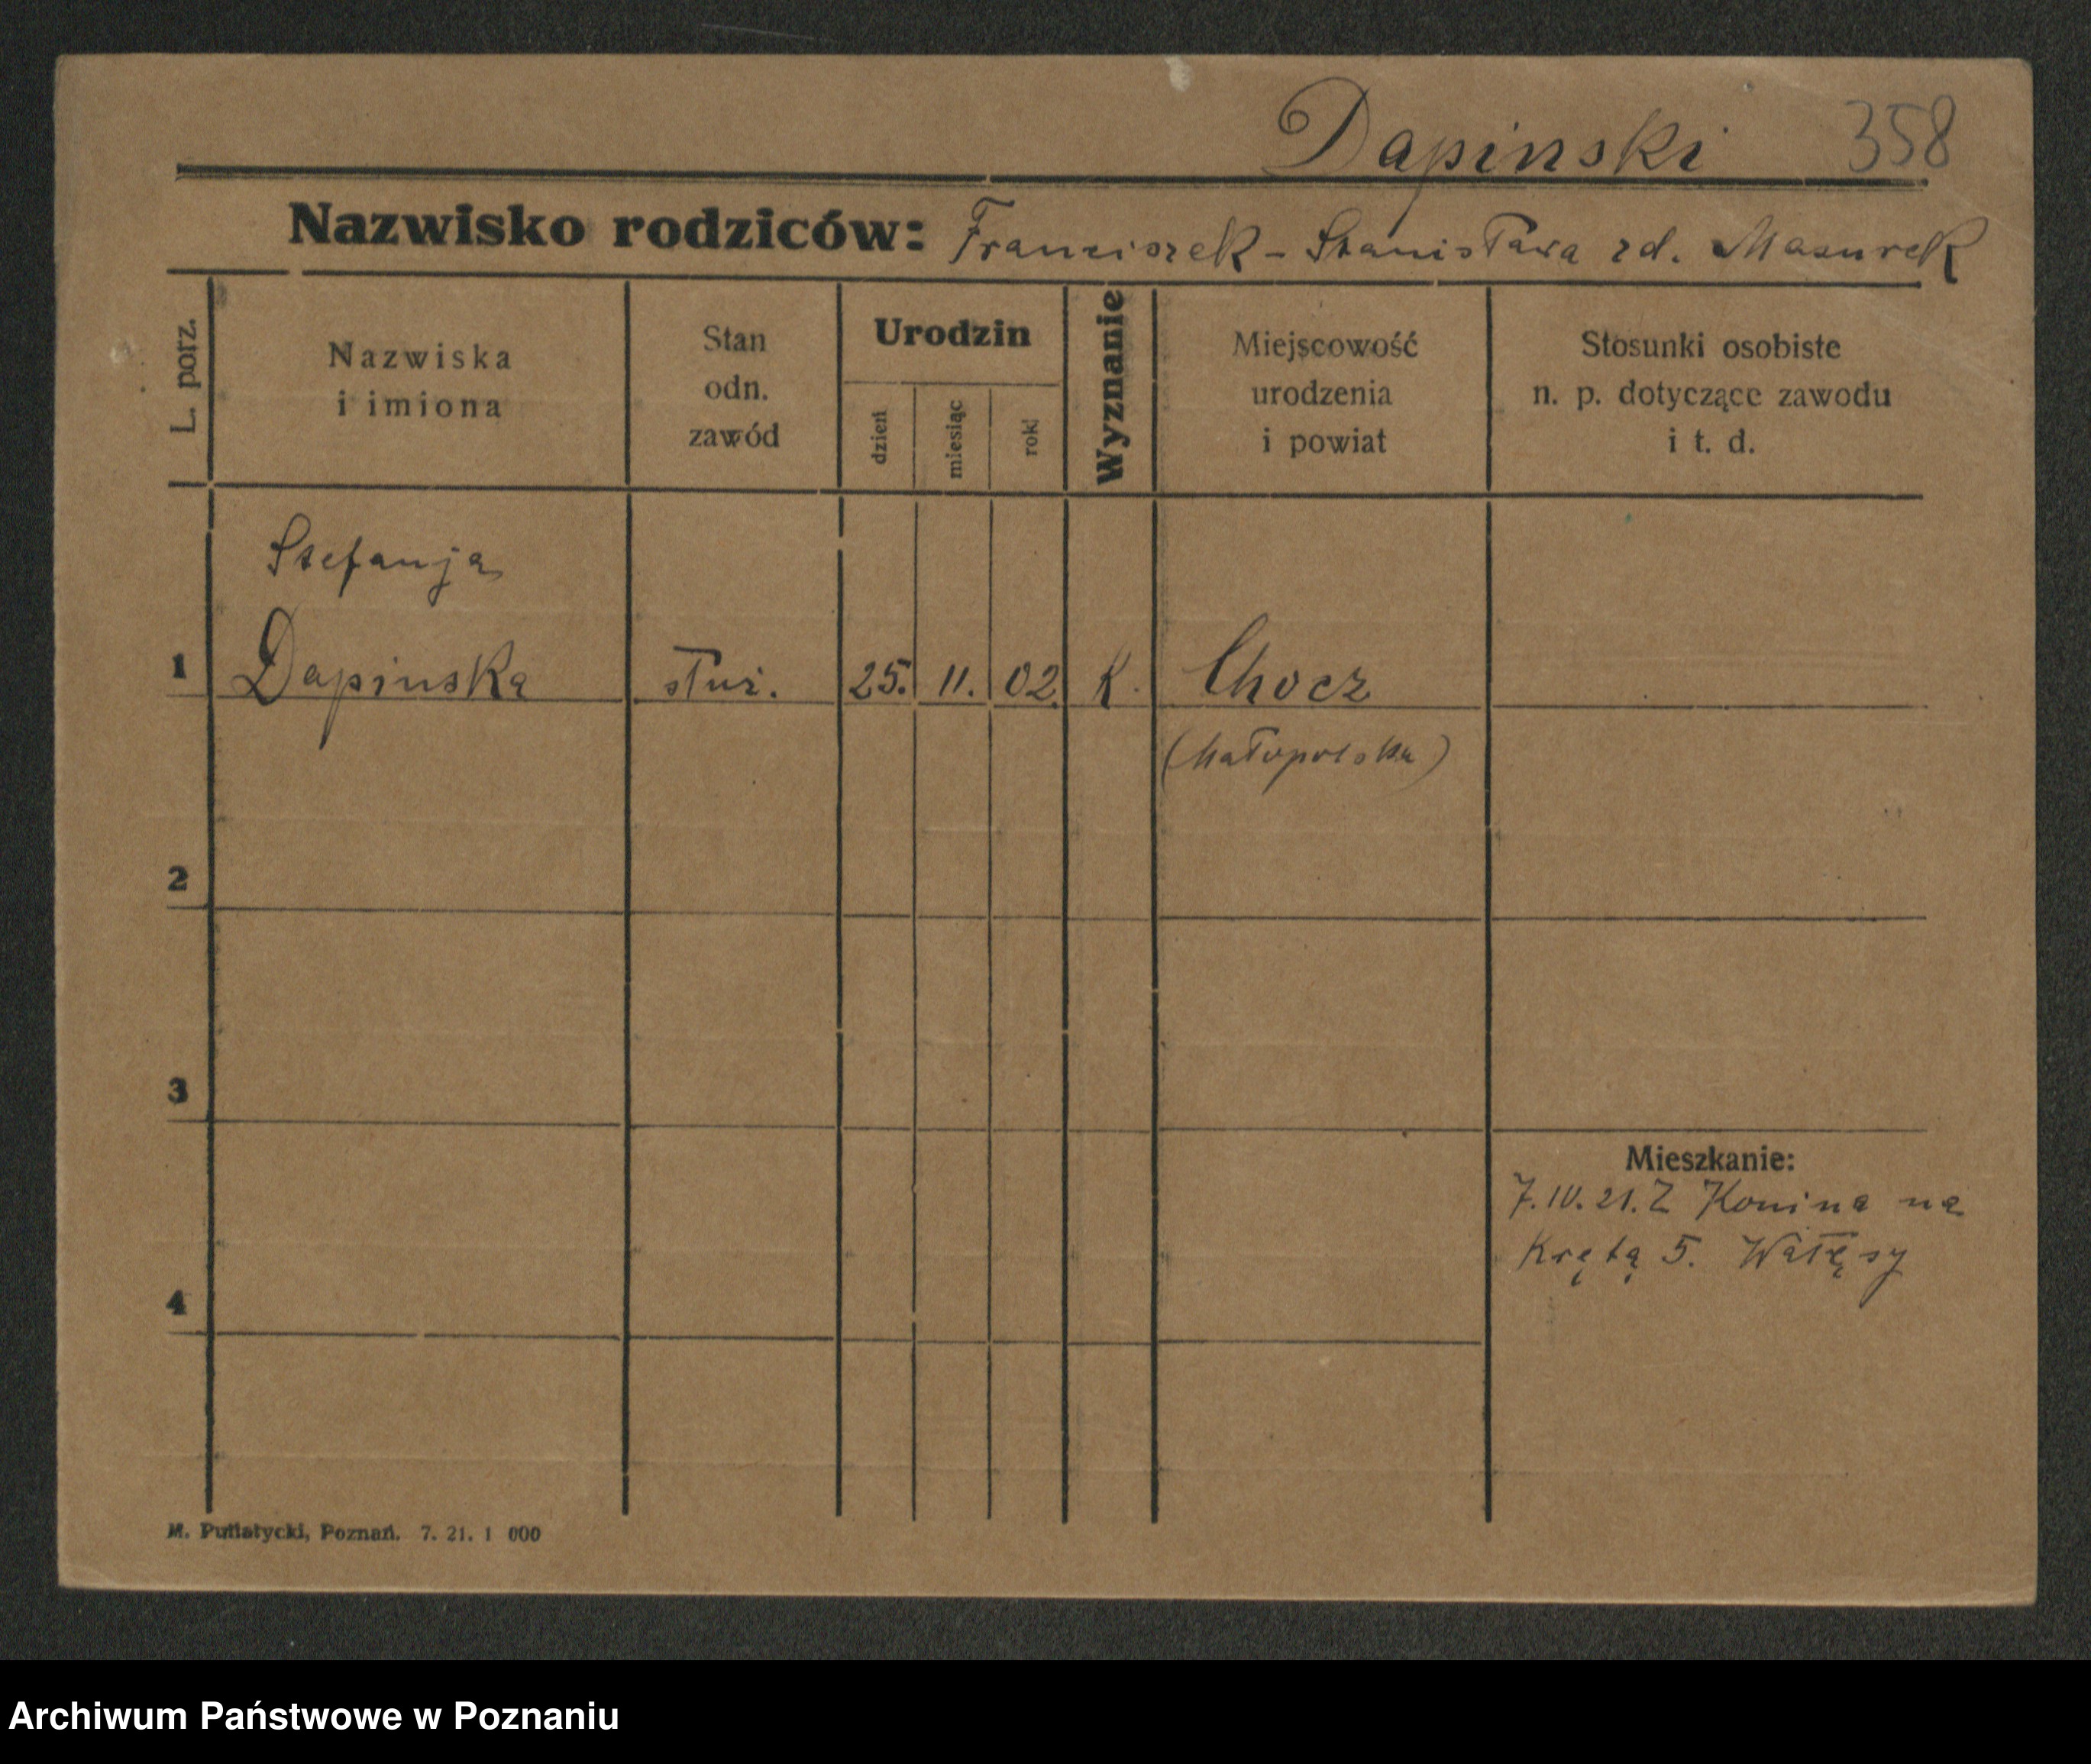 Dapinski 358
Nazwisko rodziców: Franciszek - Stanisława zd. Mazurek
L. porz.
Nazwiska
i imiona
Stan
odn.
zawód
Urodzin
dzień
miesiąc
rok
Wyznanie
Miejscowość
urodzenia
i powiat
Stosunki osobiste
n. p. dotyczące zawodu
i t. d.
Stefanja
1 Dapinska służ. 25. 11. 02. k. Chocz
(Małopolska)
2
3
Mieszkanie:
7. IV. 21. Z Konina na
Krętą 5. Wałęsy
4
M. Putiatycki, Poznań. 7. 21. 1 000
Archiwum Państwowe w Poznaniu